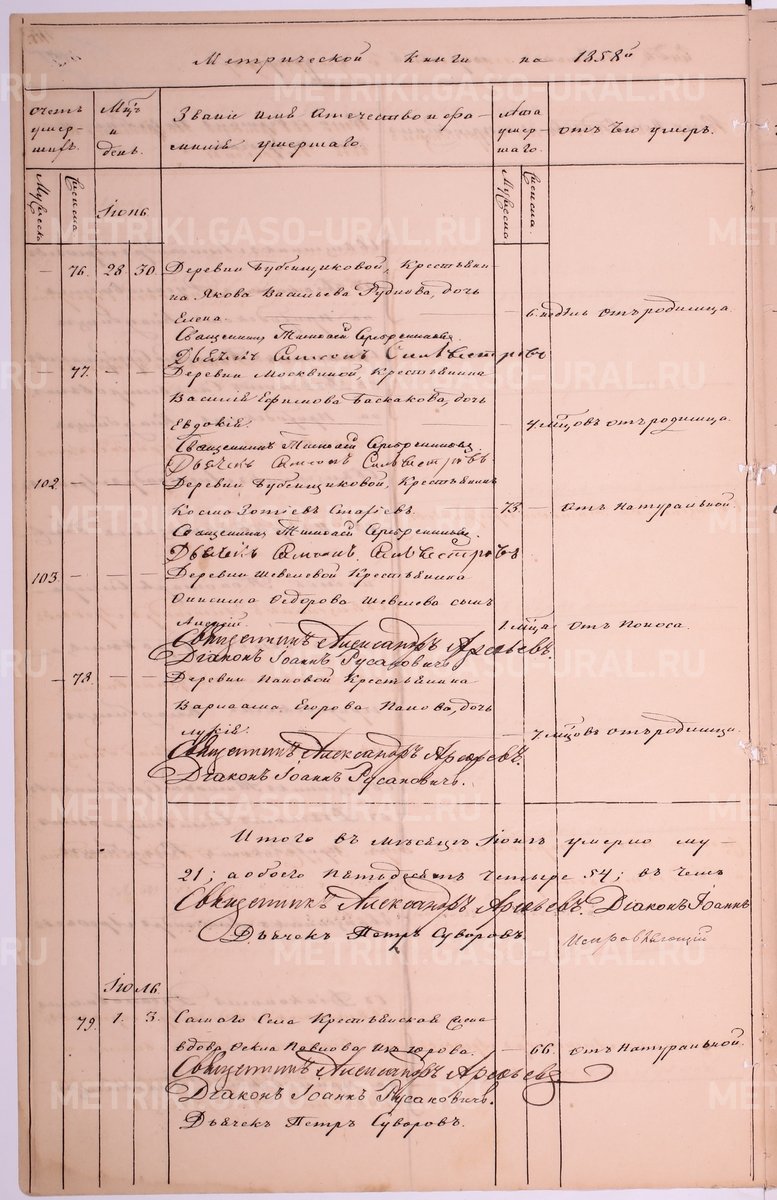 Метрической книги на 1858й
Счетъ умершихъ. Мцъ и день. Званіе имя отечество и фамилія умершаго. Лѣта умершаго. отъ чего умеръ.
Мужеска Женска Мужеска Женска
Іюнь
— 76. 28 30. Деревни Бубенщиковой, Крестьяни-
на Якова Васильева Рудн, дочь
Елена. — 6. недѣль отъ родимца.
Священникъ Серебренниковъ.
Дьячекъ Силвестровъ
— 77. — — Деревни Москвиной, Крестьянина
Василія Ефимова Баскакова, дочь
Евдокія. — мцовъ отъ родимца.
Священникъ Серебренниковъ
Дьячекъ Силвестровъ
102 — — — Деревни Бубенщиковой, Крестьянинъ
Косма Зотіевъ 73. — отъ Натуральной.
Священникъ Серебренниковъ.
Дьячекъ Силвестровъ
103. — — — Деревни Шевелевой Крестьянина
Онисима Ѳедорова Шевелева сынъ
1. мца отъ Поноса.
Священникъ Александръ Арефьевъ.
Діаконъ Іоаннъ Русановичъ.
— 78. — — Деревни Пановой Крестьянина
Варлаама Егорова Панова, дочь
Лукія. — 7 мцовъ отъ родимца.
Священникъ Александръ Арефьевъ.
Діаконъ Іоаннъ Русановичъ.
Итого въ мѣсяцѣ Іюнѣ умерло му—
21; а обоего пятьдесятъ четыре 54; въ чемъ
Священникъ Александръ Арефьевъ. Діаконъ Іоаннъ
Дьячекъ Петръ Суворовъ. Исправляющій
Іюль
79. 1. 3. Самаго Села Крестьянская жена
вдова Ѳекла Павлова — 66. отъ Натуральной.
Священникъ Александръ Арефьевъ
Діаконъ Іоаннъ Русановичъ.
Дьячекъ Петръ Суворовъ.
METRIKI.GASO-URAL.RU